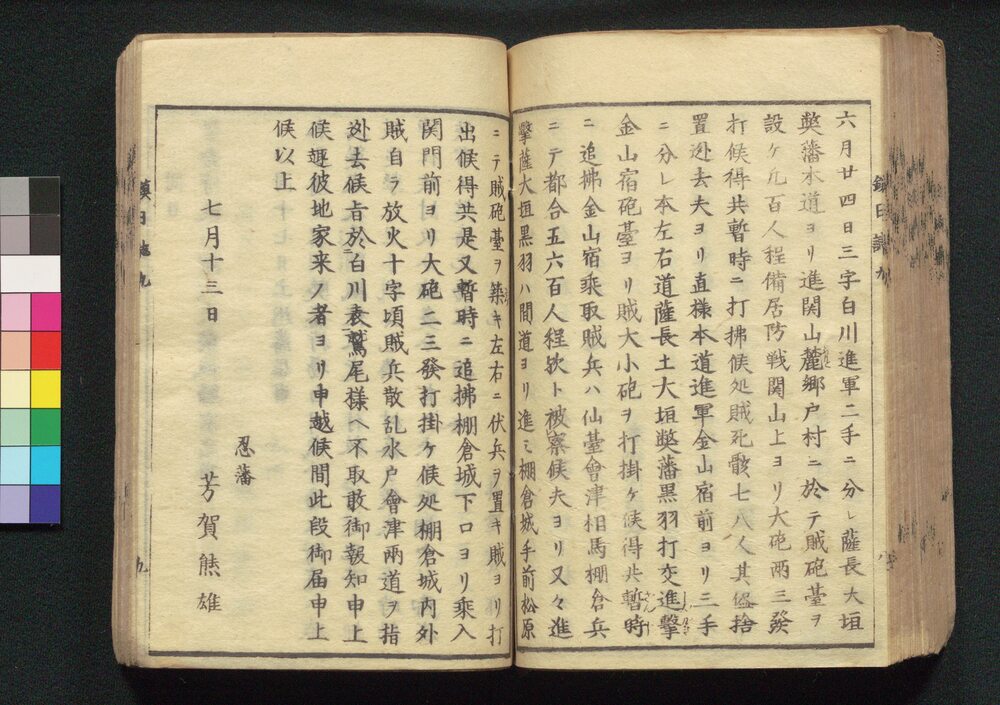 六月廿四日三字白川進軍二手ニ分レ薩長大垣
弊藩本道ヨリ進関山麓郷戸村ニ於テ賊砲臺ヲ
設ケ凡百人程備居防戦関山上ヨリ大砲両三發
打候得共暫時ニ打拂候処賊死骸七八人其儘捨
置迯去夫ヨリ直様本道進軍金山宿前ヨリ三手
ニ分レ本左右道薩長土大垣弊藩黒羽打交進撃
金山宿砲臺ヨリ賊大小砲ヲ打掛ケ候得共暫時
ニ追拂金山宿乗取賊兵ハ仙臺會津相馬棚倉兵
ニテ都合五六百人程欤ト被察候夫ヨリ又々進
撃薩大垣黒羽ハ間道ヨリ進ミ棚倉城手前松原
ニテ賊砲臺ヲ築キ左右ニ伏兵ヲ置キ賊ヨリ打
出候得共是又暫時ニ追拂棚倉城下口ヨリ乗入
関門前ヨリ大砲二三發打掛ケ候処棚倉城内外
賊自ラ放火十字頃賊兵散乱水戸會津両道ヲ指
迯去候旨於白川表鷲尾様ヘ不取敢御報知申上
候趣彼地家来ノ者ヨリ申越候間此段御届申上
候以上
七月十三日
忍藩
芳賀熊雄